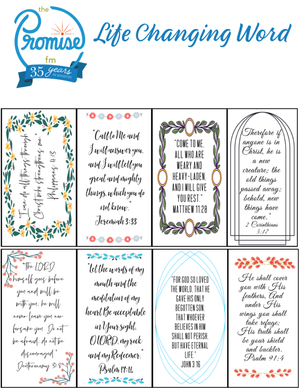 the
Promise
fm
35 years
Life Changing Word
I can do all things through
Christ who strengthens me.
Philippians 4:13
"Call to Me and
I will answer you,
and I will tell you
great and mighty
things, which you do
not know."
Jeremiah 3:33
"COME TO ME,
ALL WHO ARE
WEARY AND
HEAVY-LADEN,
AND I WILL GIVE
YOU REST."
MATTHEW 11:28
Therefore if
anyone is in
Christ, he is
a new
creature; the
old things
passed away;
behold, new
things have
come."
2 Corinthians
5:17
The LORD
himself goes before
you and will be
with you; he will
never leave you nor
forsake you. Do not
be afraid; do not be
discouraged."
Deuteronomy 31:8
Let the words of my
mouth and the
meditation of my
heart Be acceptable
in Your sight,
O LORD, my rock
and my Redeemer.
Psalm 19:14
"FOR GOD SO LOVED
THE WORLD, THAT HE
GAVE HIS ONLY
BEGOTTEN SON,
THAT WHOEVER
BELIEVES IN HIM
SHALL NOT PERISH
BUT HAVE ETERNAL
LIFE."
JOHN 3:16
He shall cover
you with His
feathers, And
under His
wings you shall
take refuge;
His truth shall
be your shield
and buckler.
Psalm 91:4